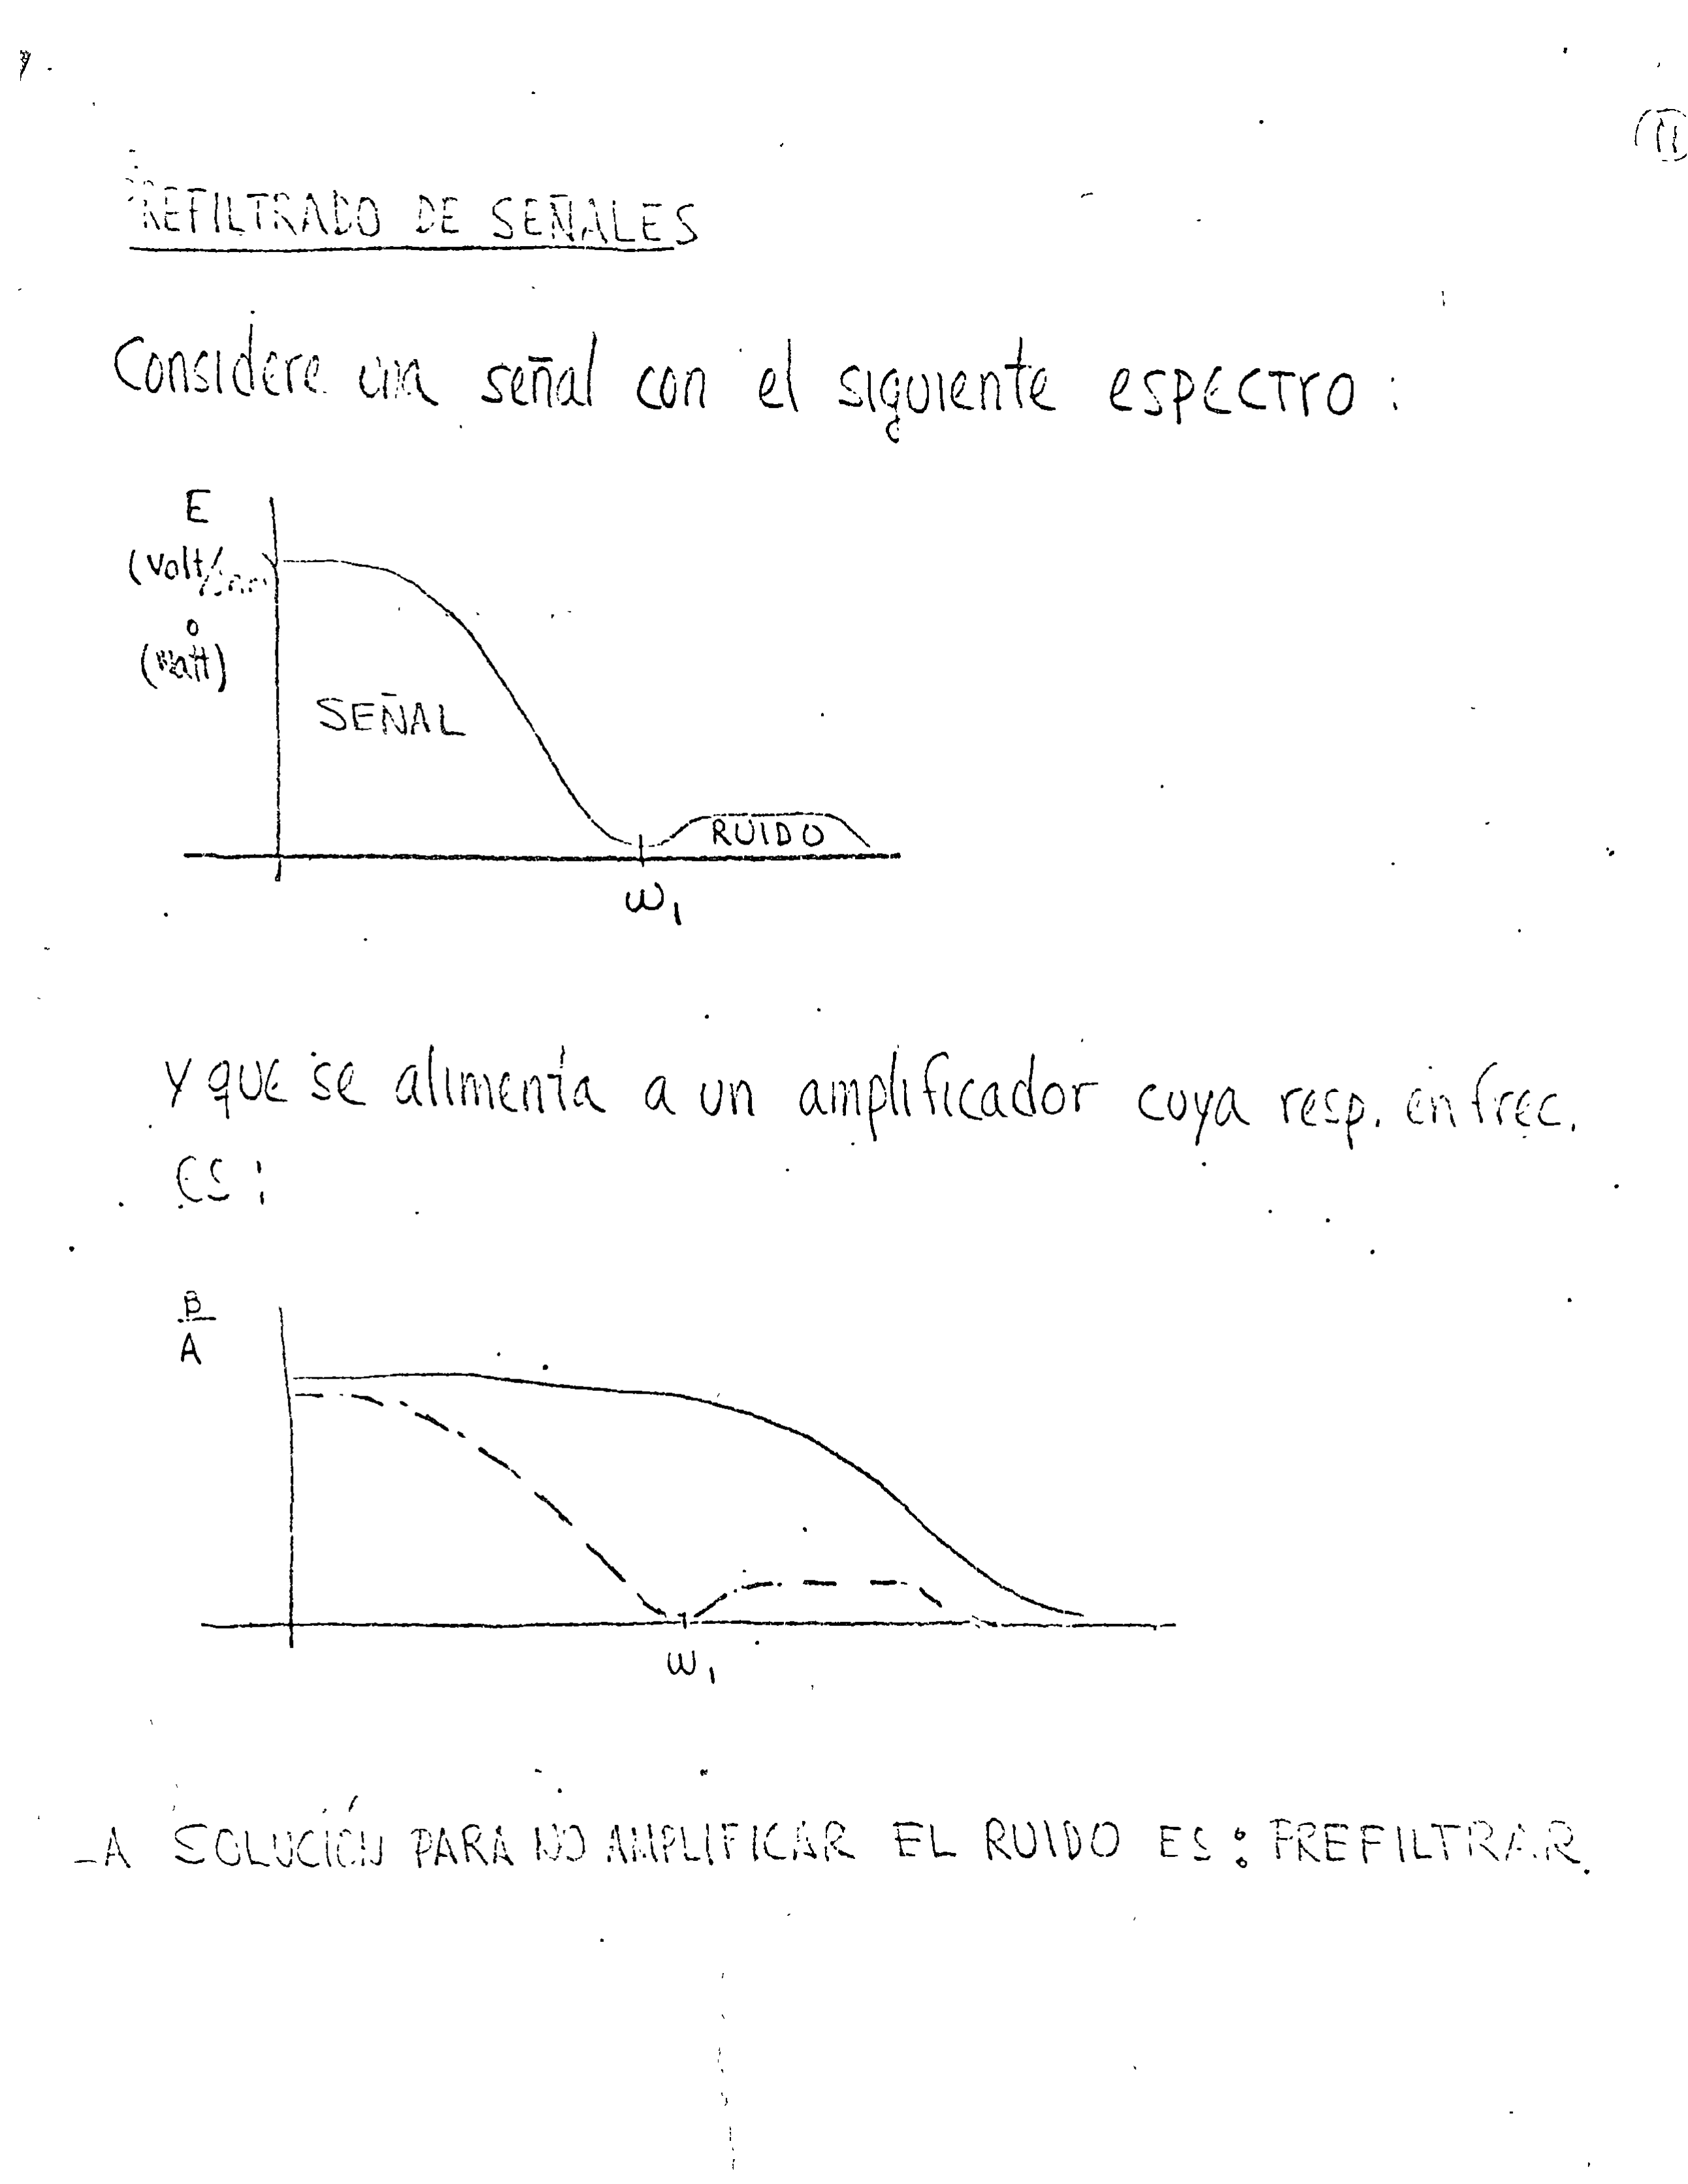 11
PREFILTRADO DE SEÑALES
Considere una señal con el siguiente ESPECTRO :
E
(Volt/
o
(Watt)
SEÑAL
RUIDO
ω₁
Y que se alimenta a un amplificador cuya resp. en frec.
es :
B
A
ω₁
LA SOLUCIÓN PARA NO AMPLIFICAR EL RUIDO ES : PREFILTRAR.